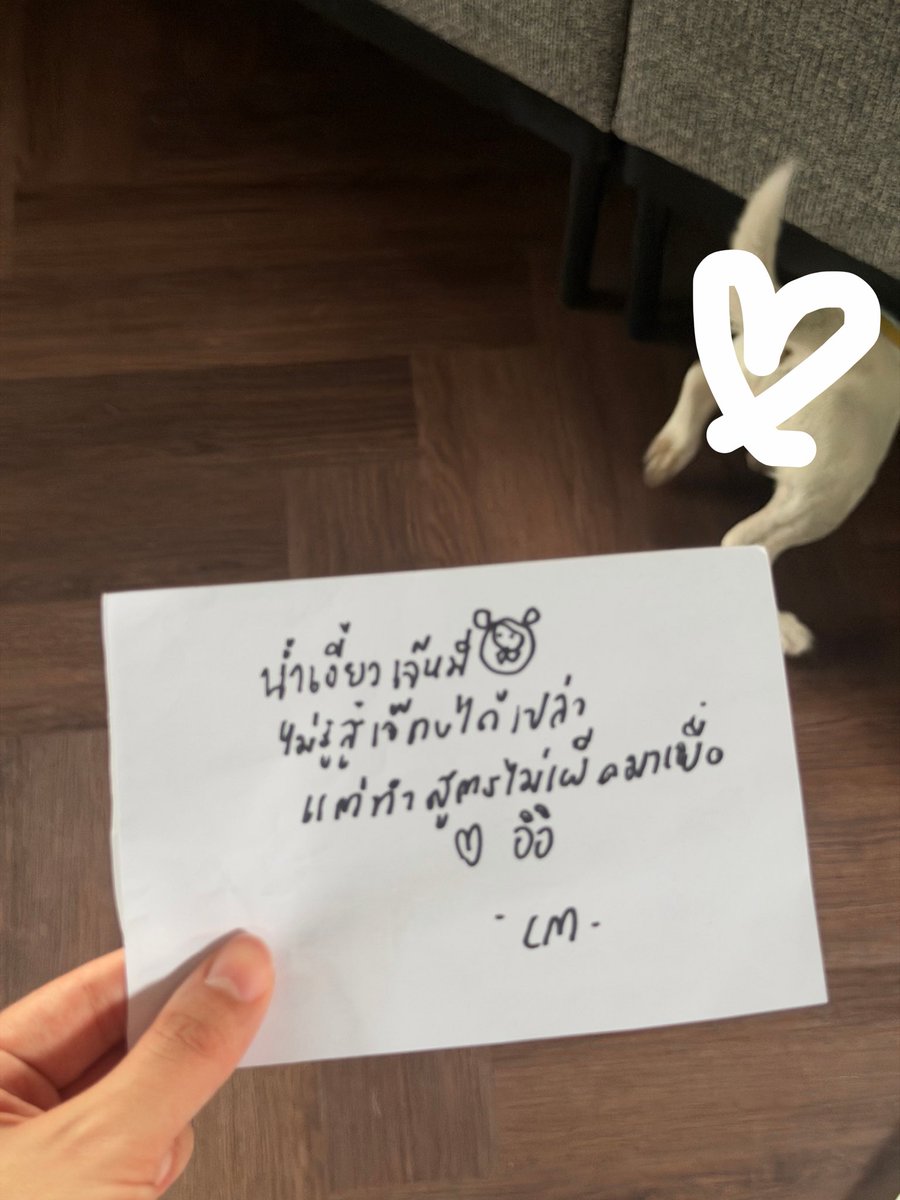 น้ำเงี้ยว เจ๊หมี
ไม่รู้สู้เจ๊กบได้เปล่า
แต่ทำสูตรไม่เผ็ดมาเผื่อ
อิอิ
- เต -